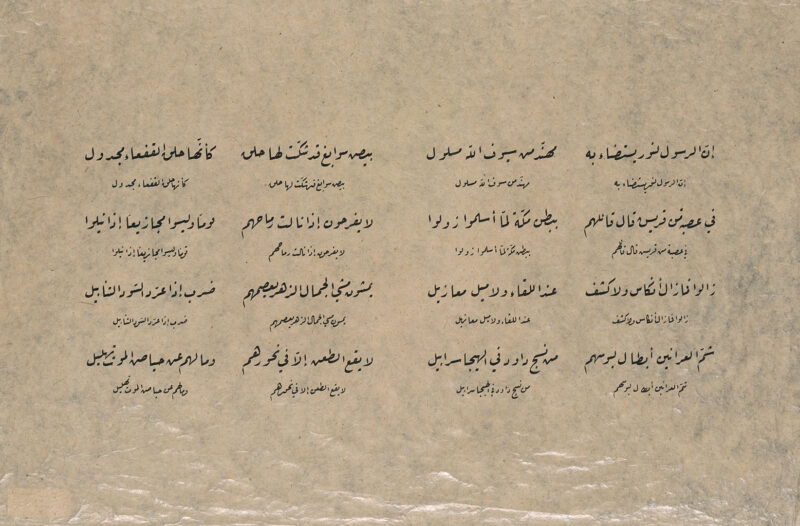 إنّ الرسول لنور يستضاء به مهنّد من سيوف اللّه مسلول بيض سوابغ قد شكّت لها حلق كأنّها حلق القفعاء مجدول
إنّ الرسول لنور يستضاء به مهنّد من سيوف اللّه مسلول بيض سوابغ قد شكّت لها حلق كأنها حلق القفعاء مجدول
في عصبة من قريش قال قائلهم ببطن مكّة لمّا أسلموا زولوا لا يفرحون إذا نالت رماحهم قوما وليسوا مجازيعا إذا نيلوا
في عصبة من قريش قال قائلهم ببطن مكّة لمّا أسلموا زولوا لا يفرحون إذا نالت رماحهم قوما وليسوا مجازيعا إذا نيلوا
زالوا فما زال أنكاس ولا كشف عند اللقاء ولا ميل معازيل يمشون مشي الجمال الزهر يعصمهم ضرب إذا عرّد السود التنابيل
زالوا فما زال أنكاس ولا كشف عند اللقاء ولا ميل معازيل يمشون مشي الجمال الزهر يعصمهم ضرب إذا عرّد السود التنابيل
شمّ العرانين أبطال لبوسهم من نسج داود في الهيجا سرابيل لا يقع الطعن إلّا في نحورهم وما لهم عن حياض الموت تهليل
شمّ العرانين أبطال لبوسهم من نسج داود في الهيجا سرابيل لا يقع الطعن إلا في نحورهم وما لهم عن حياض الموت تهليل